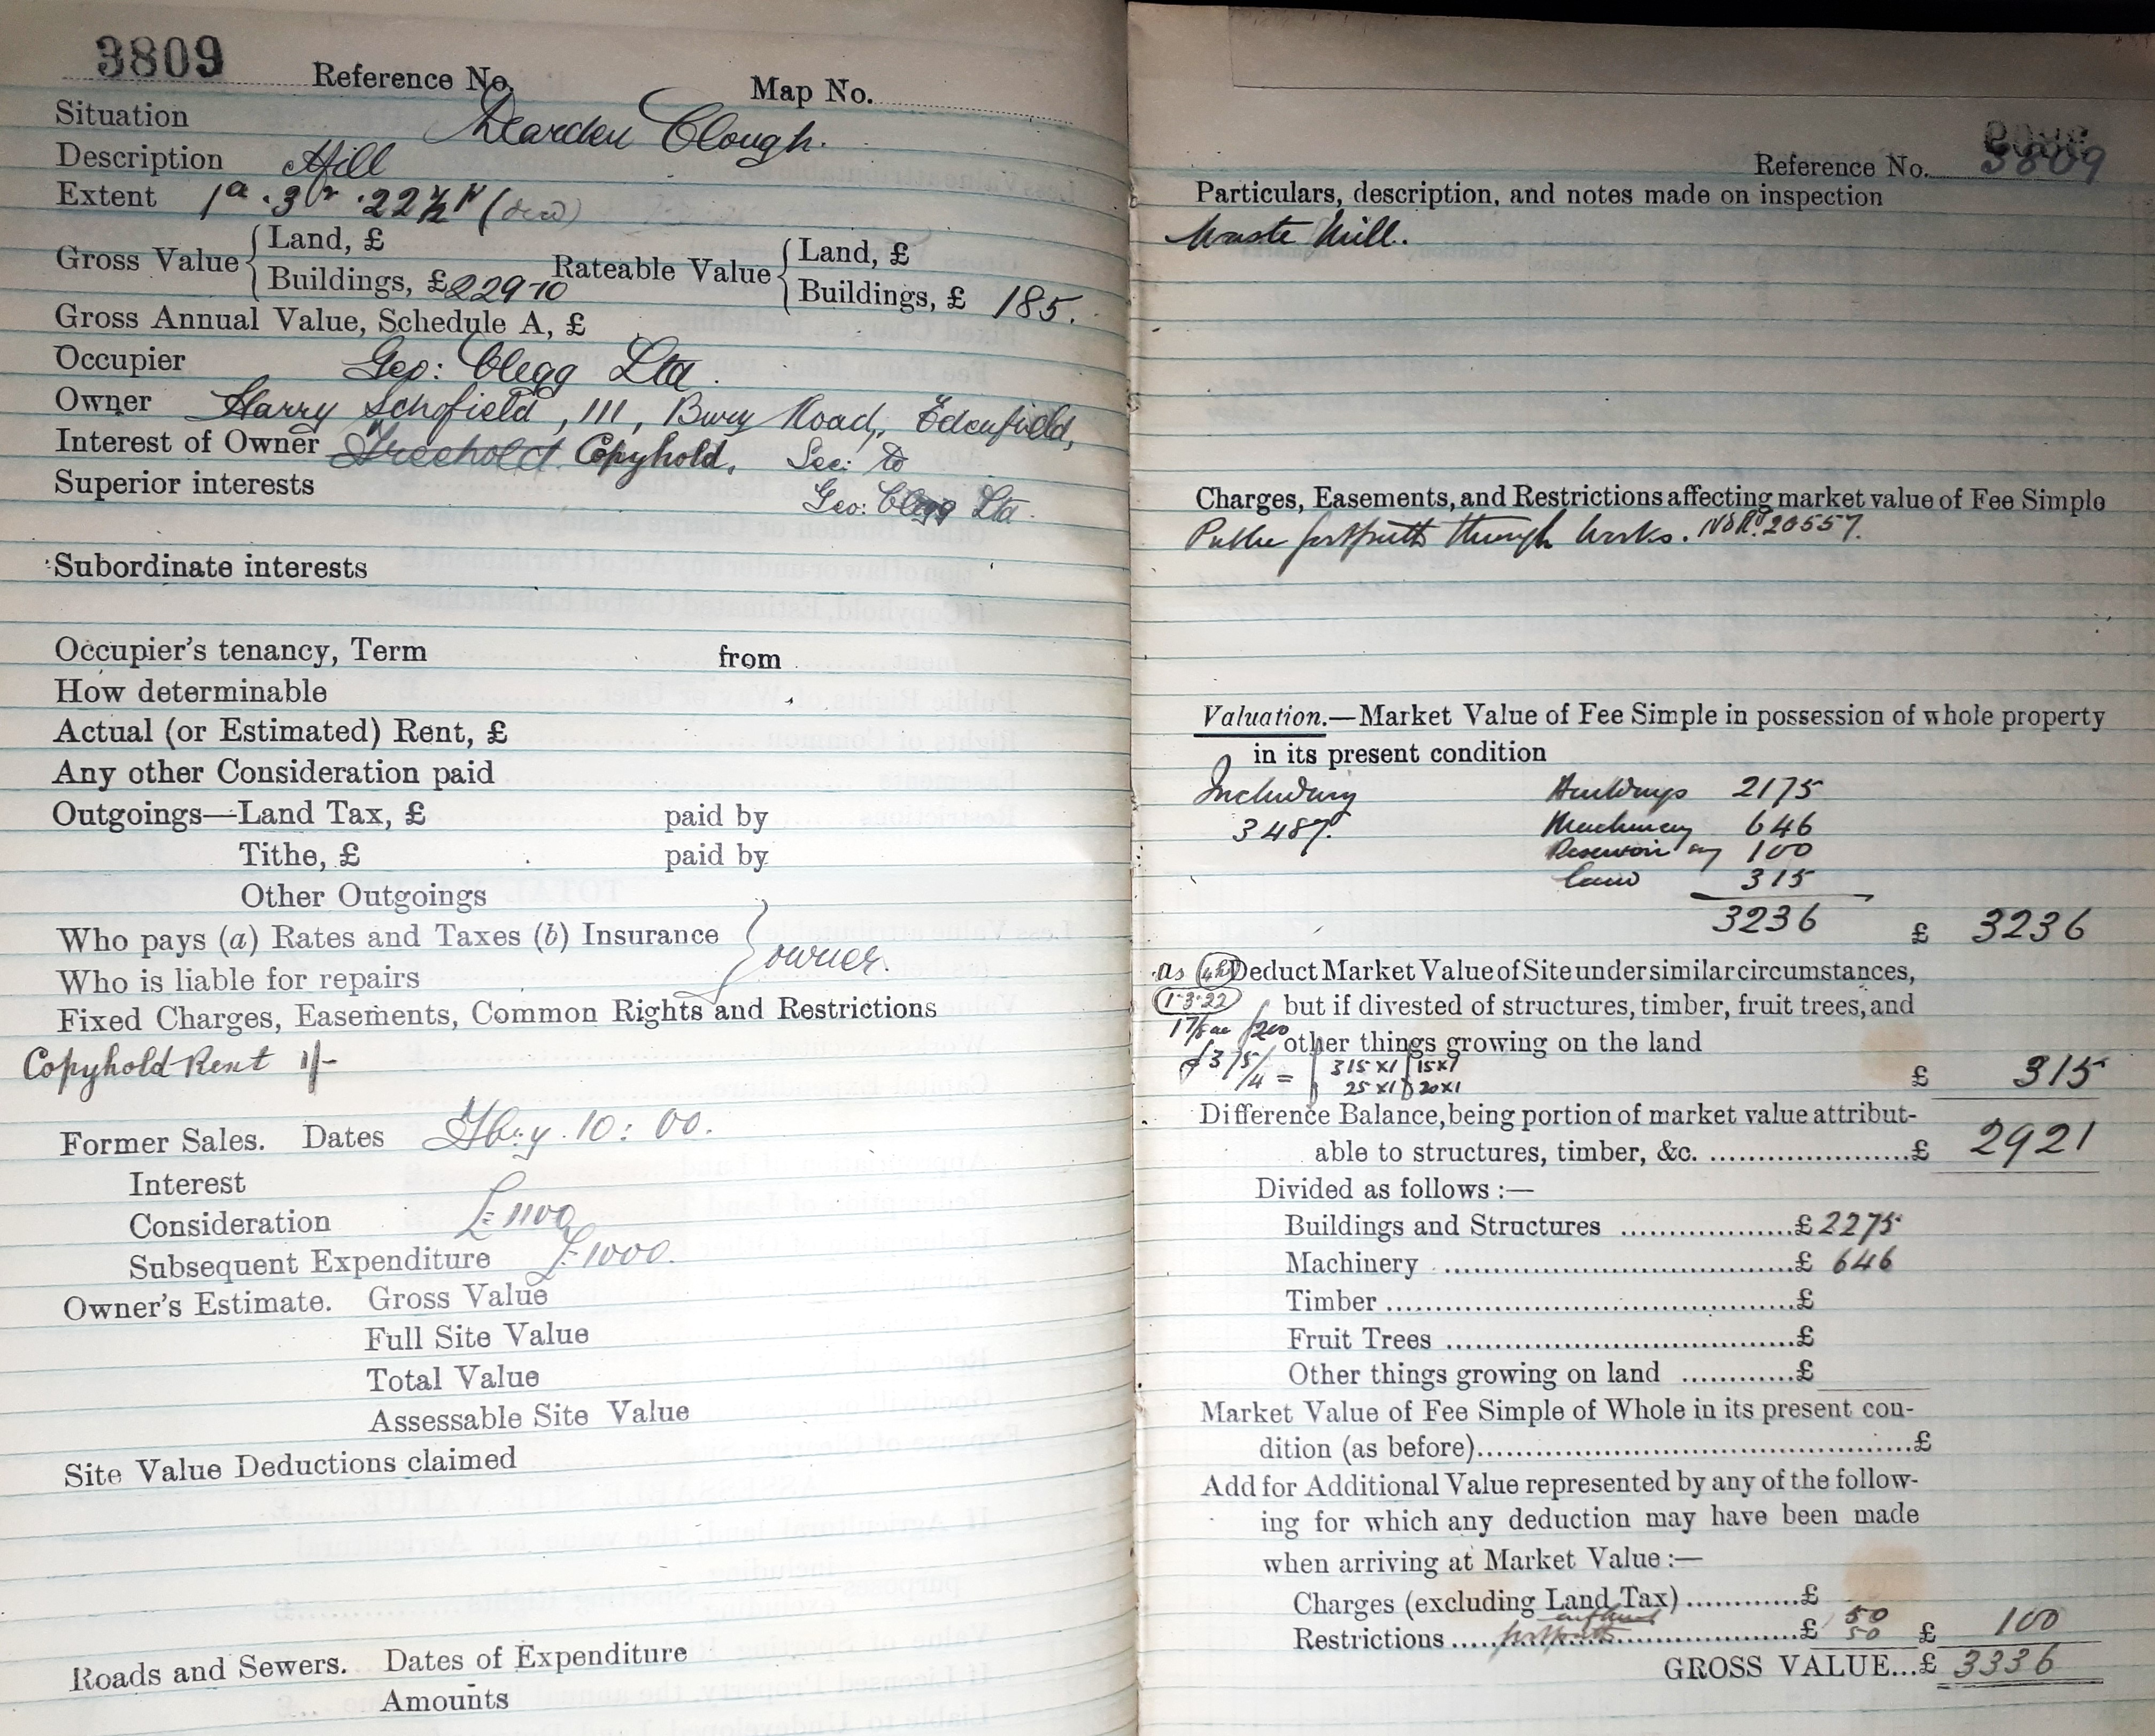 3809 Reference No. Map No.
Situation Dearden Clough.
Description Mill
Extent 1a. 3r. 22½p
Gross Value { Land, £
Buildings, £ 229-10
Rateable Value { Land, £
Buildings, £ 185.
Gross Annual Value, Schedule A, £
Occupier Geo: Clegg Ltd.
Owner Harry Schofield, 111, Bury Road, Edenfield,
Interest of Owner Freehold Copyhold. Sec: to
Superior interests Geo: Clegg Ltd.
Subordinate interests
Occupier's tenancy, Term from
How determinable
Actual (or Estimated) Rent, £
Any other Consideration paid
Outgoings—Land Tax, £ paid by
Tithe, £ paid by
Other Outgoings
Who pays (a) Rates and Taxes (b) Insurance } owner.
Who is liable for repairs
Fixed Charges, Easements, Common Rights and Restrictions
Copyhold Rent 1/-
Former Sales. Dates 10: 00.
Interest
Consideration £1100
Subsequent Expenditure £1000.
Owner's Estimate. Gross Value
Full Site Value
Total Value
Assessable Site Value
Site Value Deductions claimed
Roads and Sewers. Dates of Expenditure
Amounts
Reference No. 3809
Particulars, description, and notes made on inspection
Waste Mill.
Charges, Easements, and Restrictions affecting market value of Fee Simple
Public footpath through works. 20557.
Valuation.—Market Value of Fee Simple in possession of whole property
in its present condition
Including Buildings 2175
3487. Machinery 646
Reservoir 100
Land 315
3236 £ 3236
as Deduct Market Value of Site under similar circumstances,
1·3·22 but if divested of structures, timber, fruit trees, and
200 other things growing on the land
315×1 15×7
25×1 20×1 £ 315
Difference Balance, being portion of market value attribut-
able to structures, timber, &c. £ 2921
Divided as follows :—
Buildings and Structures £ 2275
Machinery £ 646
Timber £
Fruit Trees £
Other things growing on land £
Market Value of Fee Simple of Whole in its present con-
dition (as before) £
Add for Additional Value represented by any of the follow-
ing for which any deduction may have been made
when arriving at Market Value :—
Charges (excluding Land Tax) £
50
Restrictions footpath £ 50 £ 100
GROSS VALUE...£ 3336